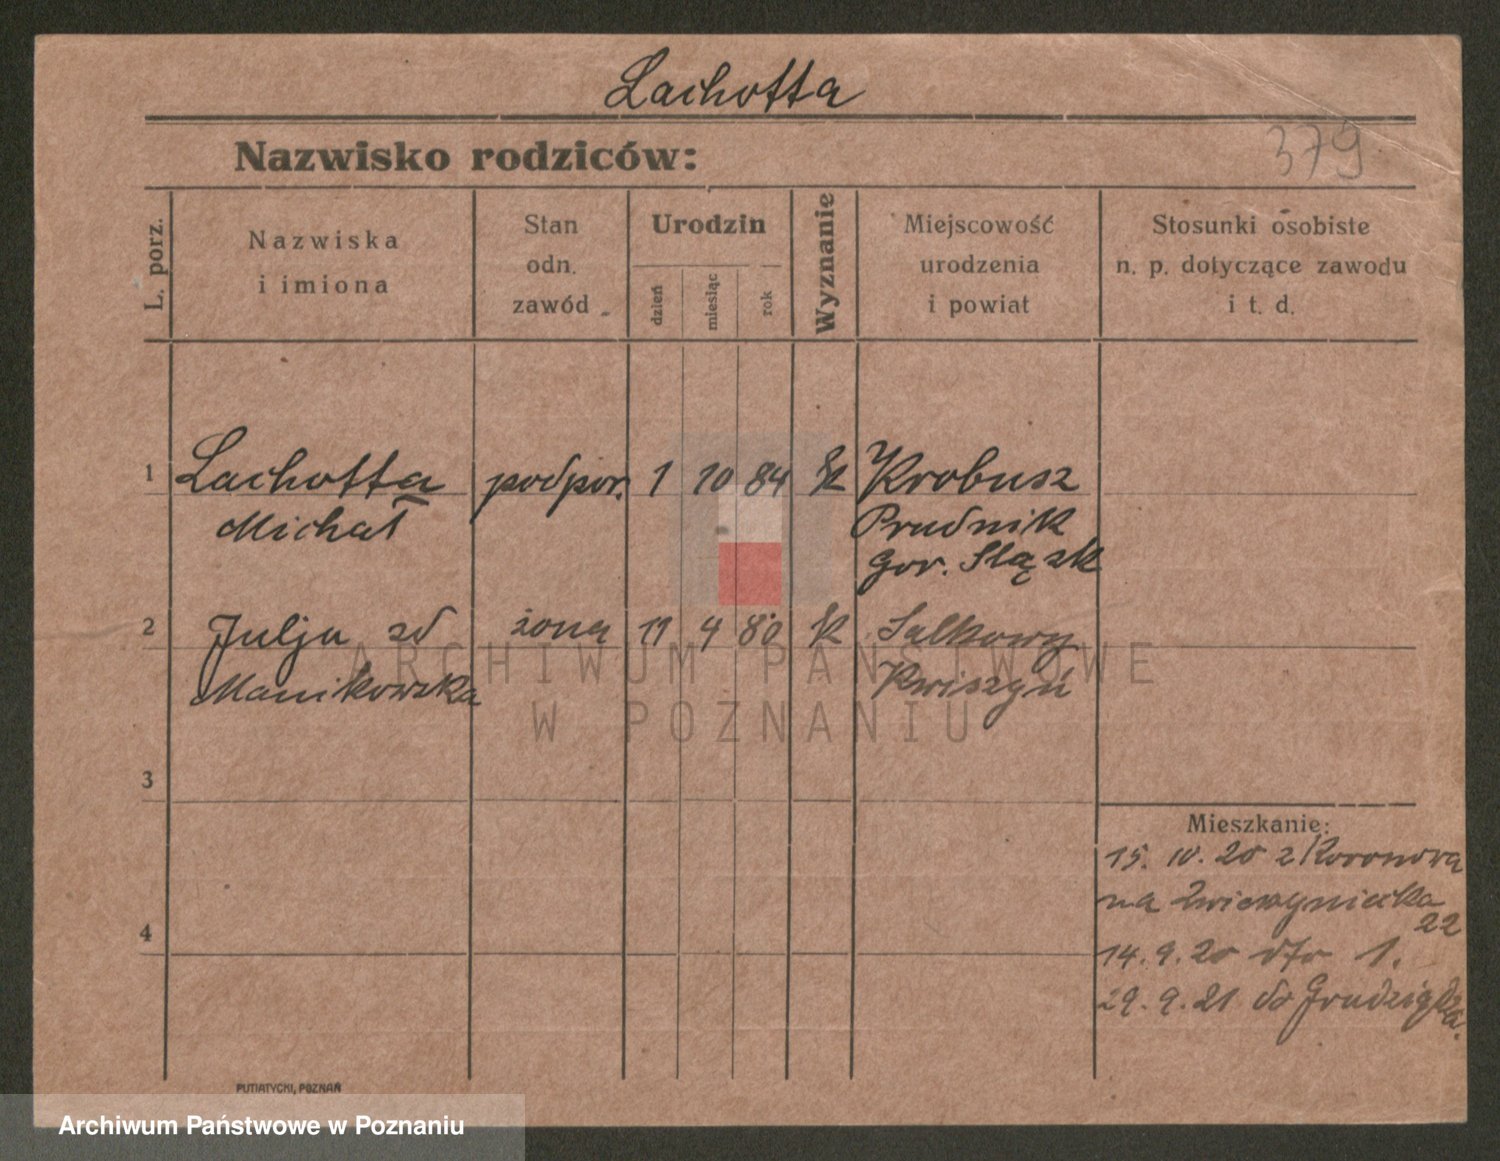 Lachotta
Nazwisko rodziców:
379
L. porz.
Nazwiska
i imiona
Stan
odn.
zawód
Urodzin
dzień
miesiąc
rok
Wyznanie
Miejscowość
urodzenia
i powiat
Stosunki osobiste
n. p. dotyczące zawodu
i t. d.
1 Lachotta podpor. 1 10 84 k Krobusz
Michał Prudnik
Gór. Śląsk
2 Julja zd żona 19 4 80 k
Manikowska
ARCHIWUM PAŃSTWOWE
W POZNANIU
3
Mieszkanie:
15. 20 z Koronowa
na Zwierzyniecka
22
4
14.9.20 dto 1.
29.9.21 do Grudziądza.
PUTIATYCKI, POZNAŃ
Archiwum Państwowe w Poznaniu